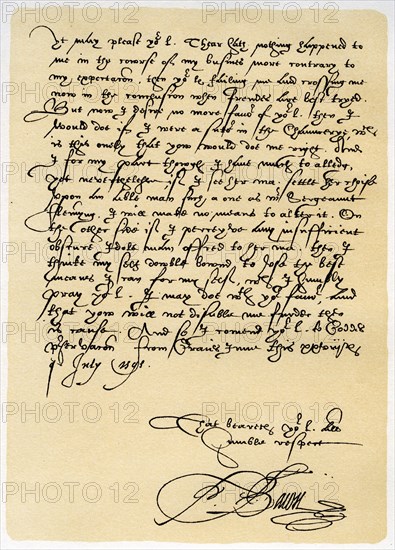 It may please yor L. Thear hath nothing happened to
me in the course of my busines more contrary to
my expectacon, then yor Ls failing me and crossing me
now in the conclusion when frendes are best tryed.
But now I desire no more favor of yor L. then I
would do if I were a sutor in the Chauncerye wch
is this onely that yow would doe me right. And
I for my part though I have much to alledg,
yet nevertheless if I see her Ma. settle her choise
upon an able man such a one as Sergeaunt
Fleming. I will make no means to alter it. On
the other side if I perceyve any insufficient
obscure Idole man offred to her Ma. then I
thinke my self double bownd to use the best
meanes I can for my self, wch I humbly
pray yor L. I may do wth yor favor, and
that yow will not disable me furder then
is cause. And so I comend yor L. to Goddes
preservacon From Graies Inne this
of July 1595.
That beareth yor L. all
humble respect
Fr. Bacon
PHOTO 12